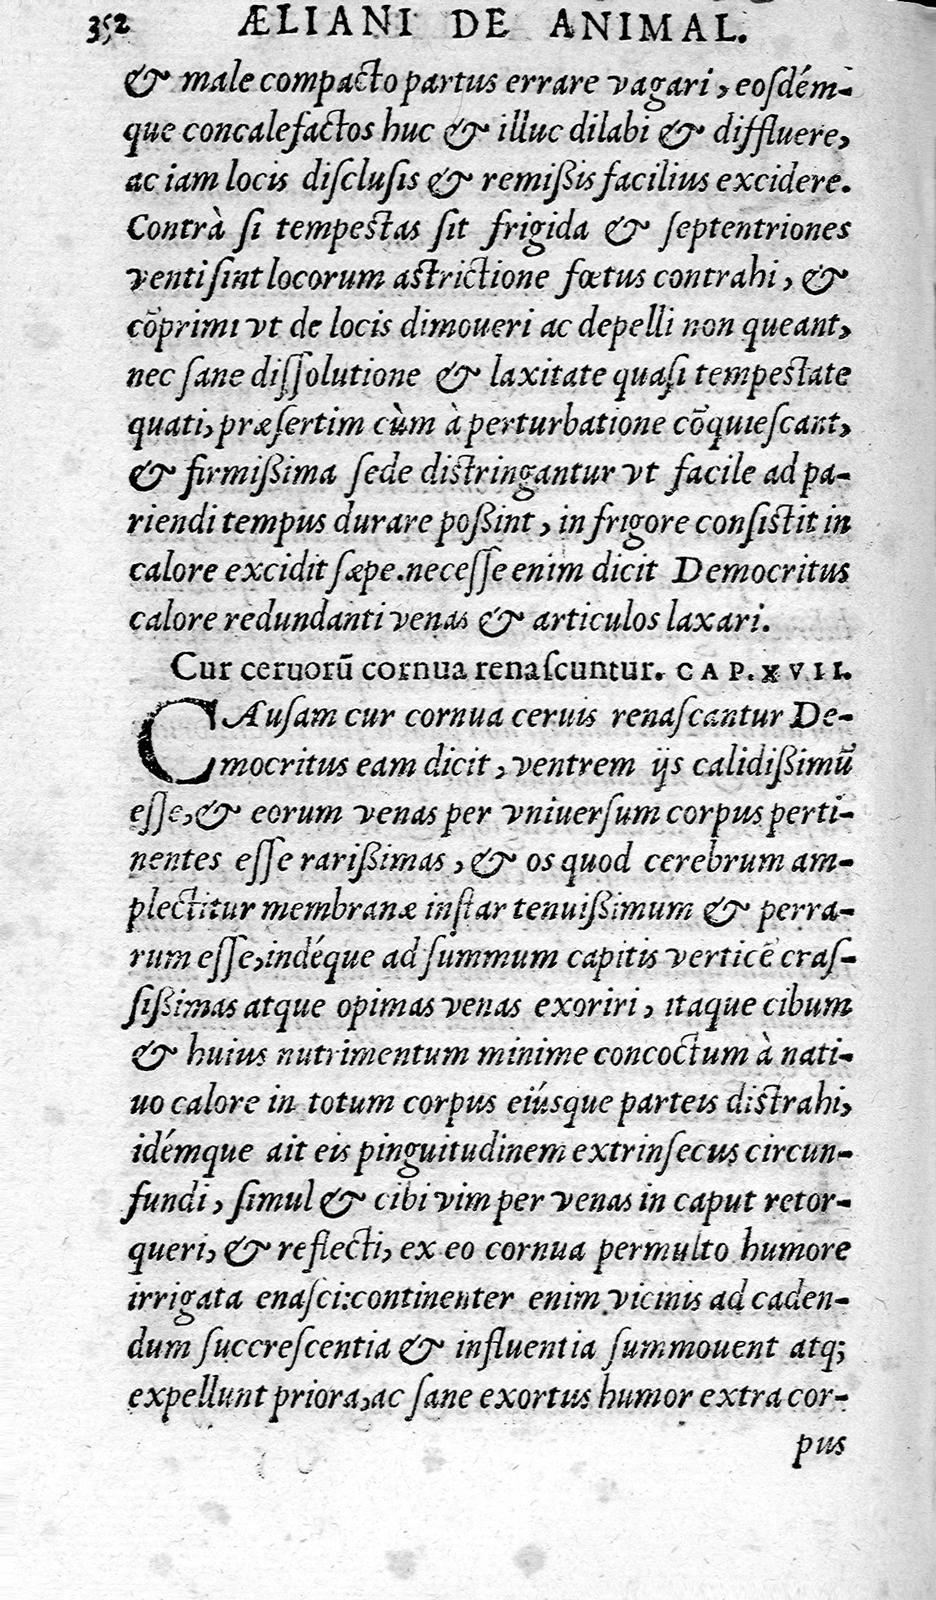 352 ÆLIANI DE ANIMAL.
& male compacto partus errare vagari, eoſdém-
que concalefactos huc & illuc dilabi & diffluere,
ac iam locis diſcluſis & remiſsis facilius excidere.
Contrà ſi tempeſtas ſit frigida & ſeptentriones
venti ſint locorum aſtrictione fœtus contrahi, &
cōprimi vt de locis dimoueri ac depelli non queant,
nec ſane diſſolutione & laxitate quaſi tempeſtate
quati, præſertim cùm à perturbatione cōquieſcant,
& firmiſsima ſede diſtringantur vt facile ad pa-
riendi tempus durare poſsint, in frigore conſiſtit in
calore excidit ſæpe. neceſſe enim dicit Democritus
calore redundanti venas & articulos laxari.
Cur ceruorū cornua renaſcuntur. CAP. XVII.
CAuſam cur cornua ceruis renaſcantur De-
mocritus eam dicit, ventrem ijs calidiſsimū
eſſe, & eorum venas per vniuerſum corpus perti-
nentes eſſe rariſsimas, & os quod cerebrum am-
plectitur membranæ inſtar tenuiſsimum & perra-
rum eſſe, indéque ad ſummum capitis verticē craſ-
ſiſsimas atque opimas venas exoriri, itaque cibum
& huius nutrimentum minime concoctum à nati-
uo calore in totum corpus eiúsque parteis diſtrahi,
idémque ait eis pinguitudinem extrinſecus circun-
fundi, ſimul & cibi vim per venas in caput retor-
queri, & reflecti, ex eo cornua permulto humore
irrigata enaſci: continenter enim vicinis ad caden-
dum ſuccreſcentia & influentia ſummouent atq;
expellunt priora, ac ſane exortus humor extra cor-
pus